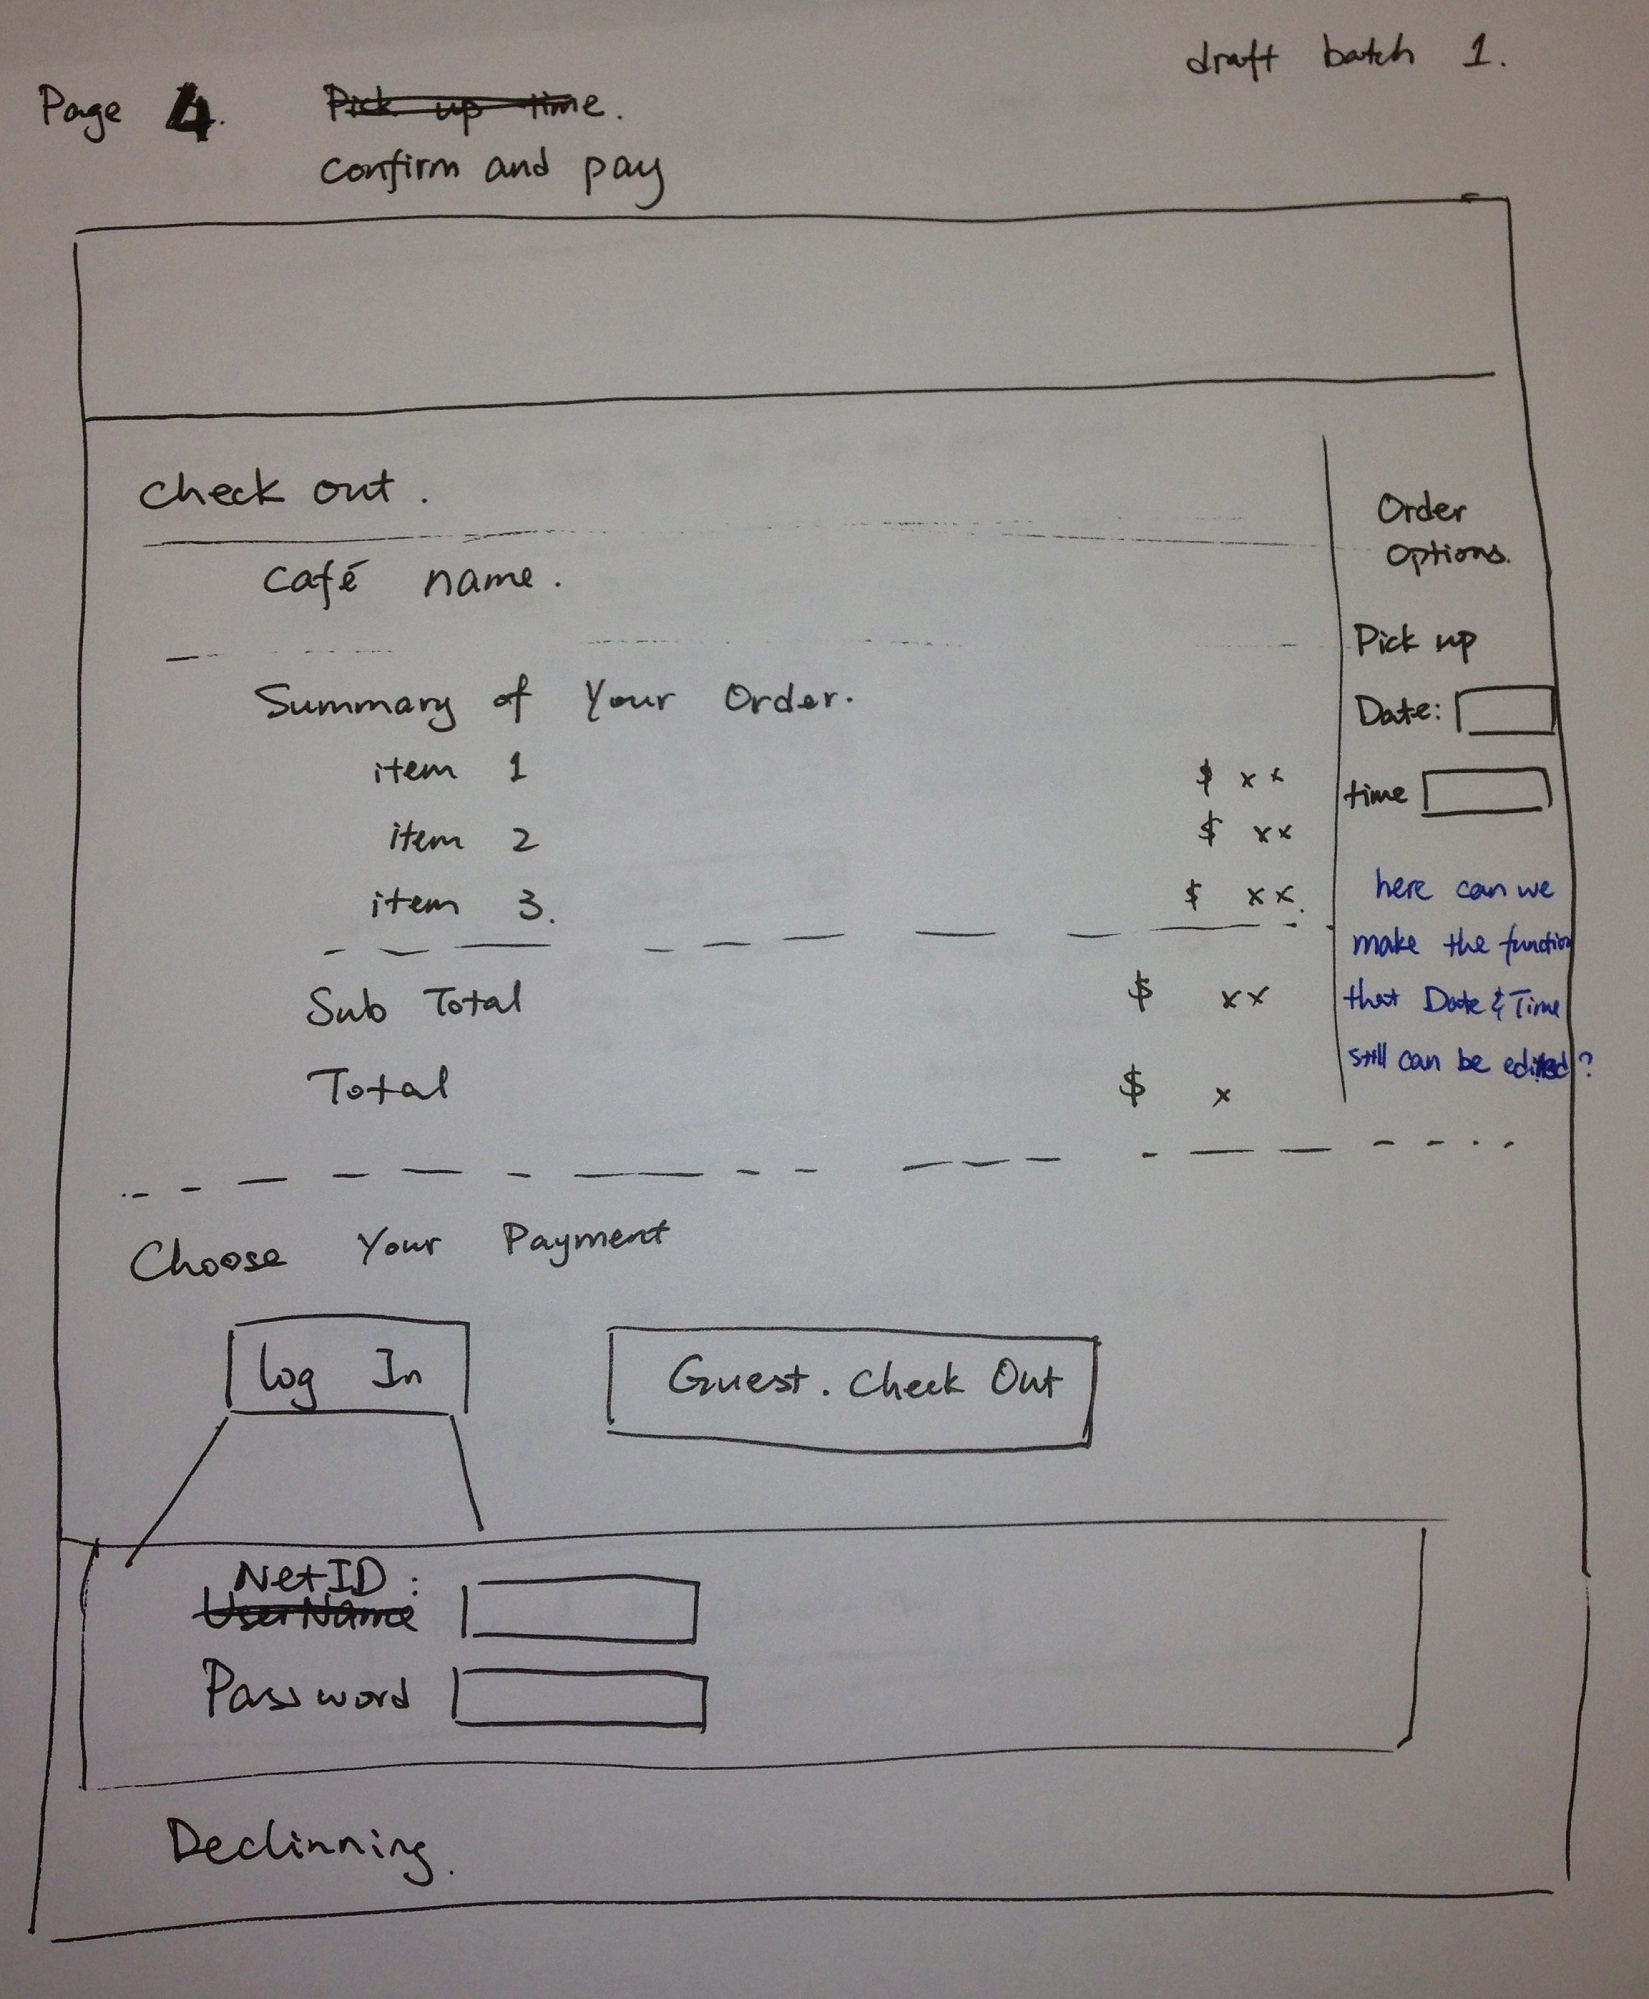 draft batch 1.
Page 4.
Pick up time.
confirm and pay
check out.
café name.
Summary of Your Order.
item 1 $ xx
item 2 $ xx
item 3. $ xx.
Sub Total $ xx
Total $ x
Order
Options.
Pick up
Date:
time
here can we
make the function
that Date & Time
still can be edited?
Choose Your Payment
log In
Guest. Check Out
NetID :
UserName
Password
Declinning.